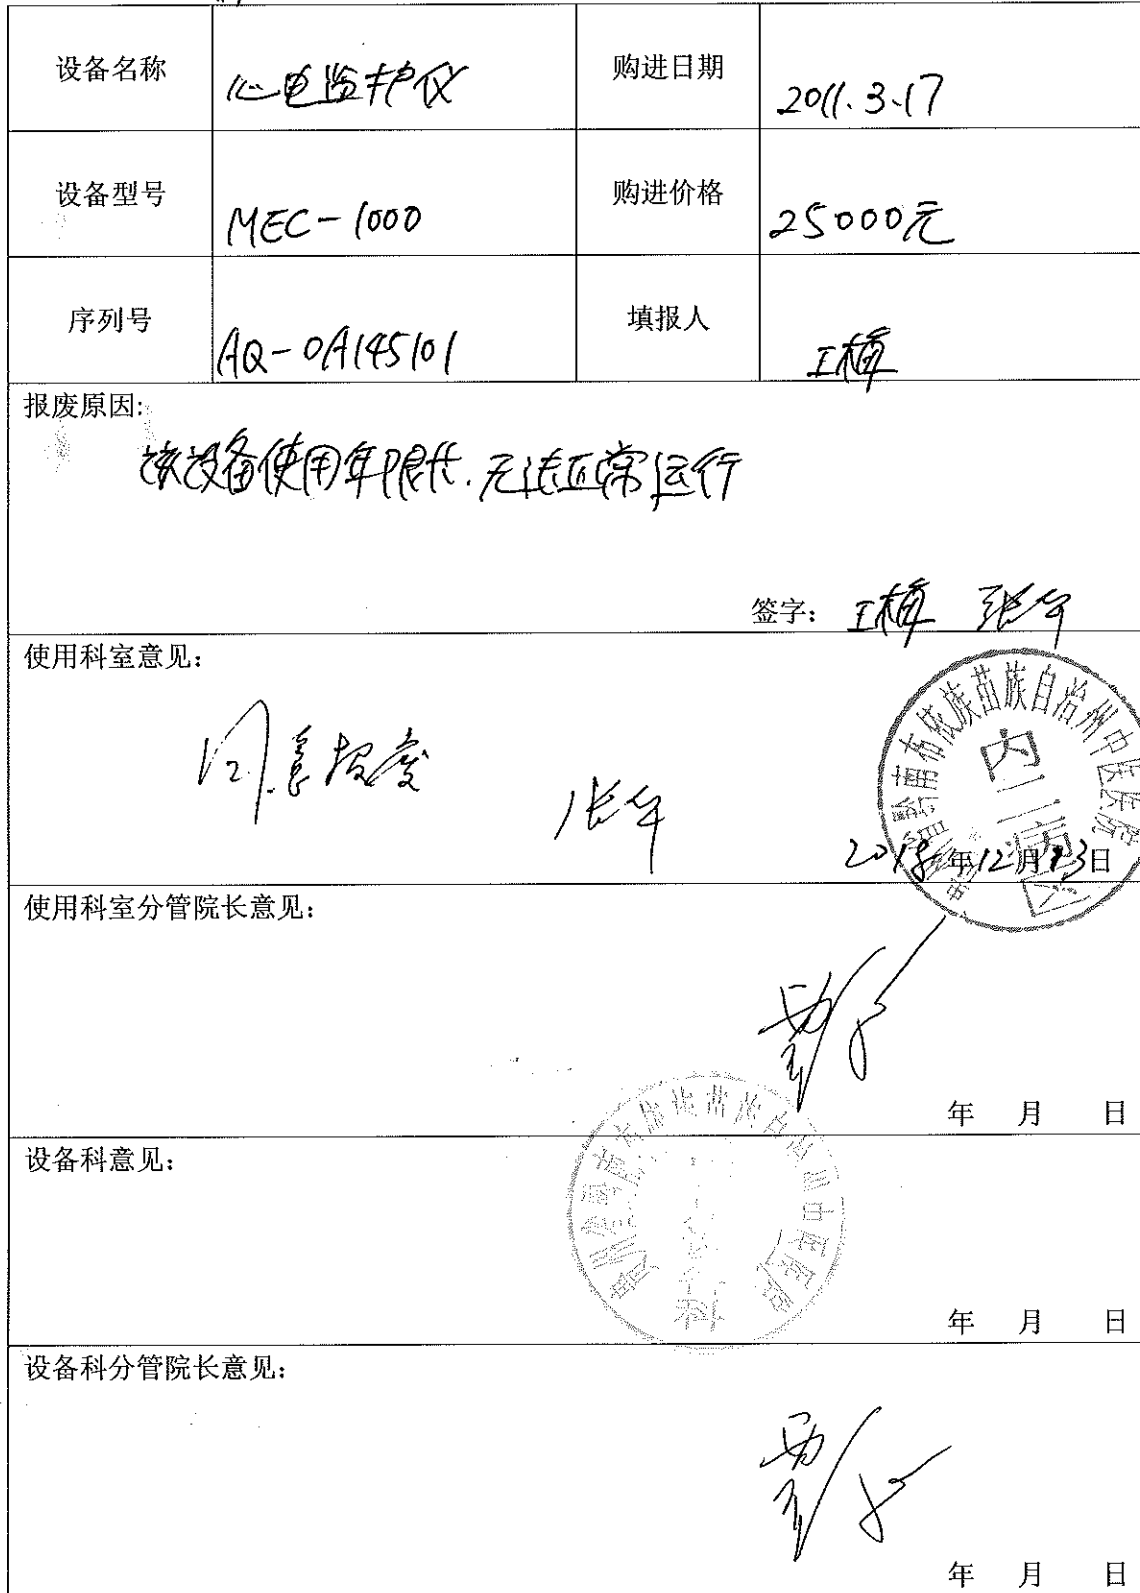 设备名称 心电监护仪 购进日期 2011.3.17
设备型号 MEC-1000 购进价格 25000元
序列号 AQ-0A145101 填报人 王梅
报废原因:
该设备使用年限长.无法正常运行
签字: 王梅 张年
使用科室意见:
同意报废
张年
黔南布依族苗族自治州中医医院
内二病区
2018年12月13日
使用科室分管院长意见:
年 月 日
设备科意见:
年 月 日
设备科分管院长意见:
年 月 日